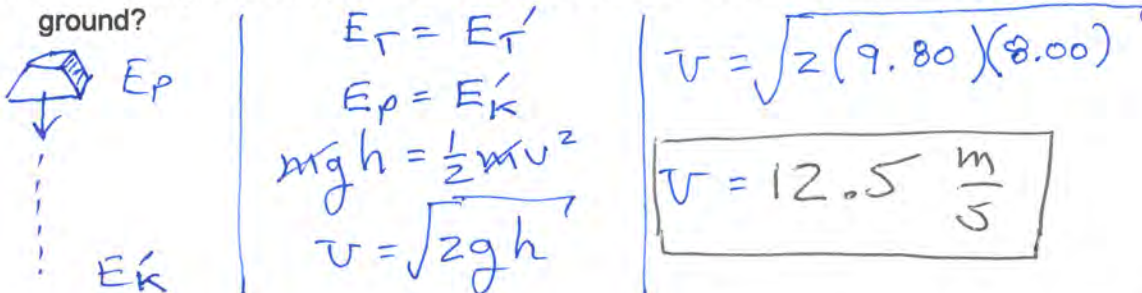 ground?
Ep
Eḱ
E_T = E_T′
Ep = E_K′
mgh = ½mv²
v = √2gh
v = √2(9.80)(8.00)
v = 12.5 m/s